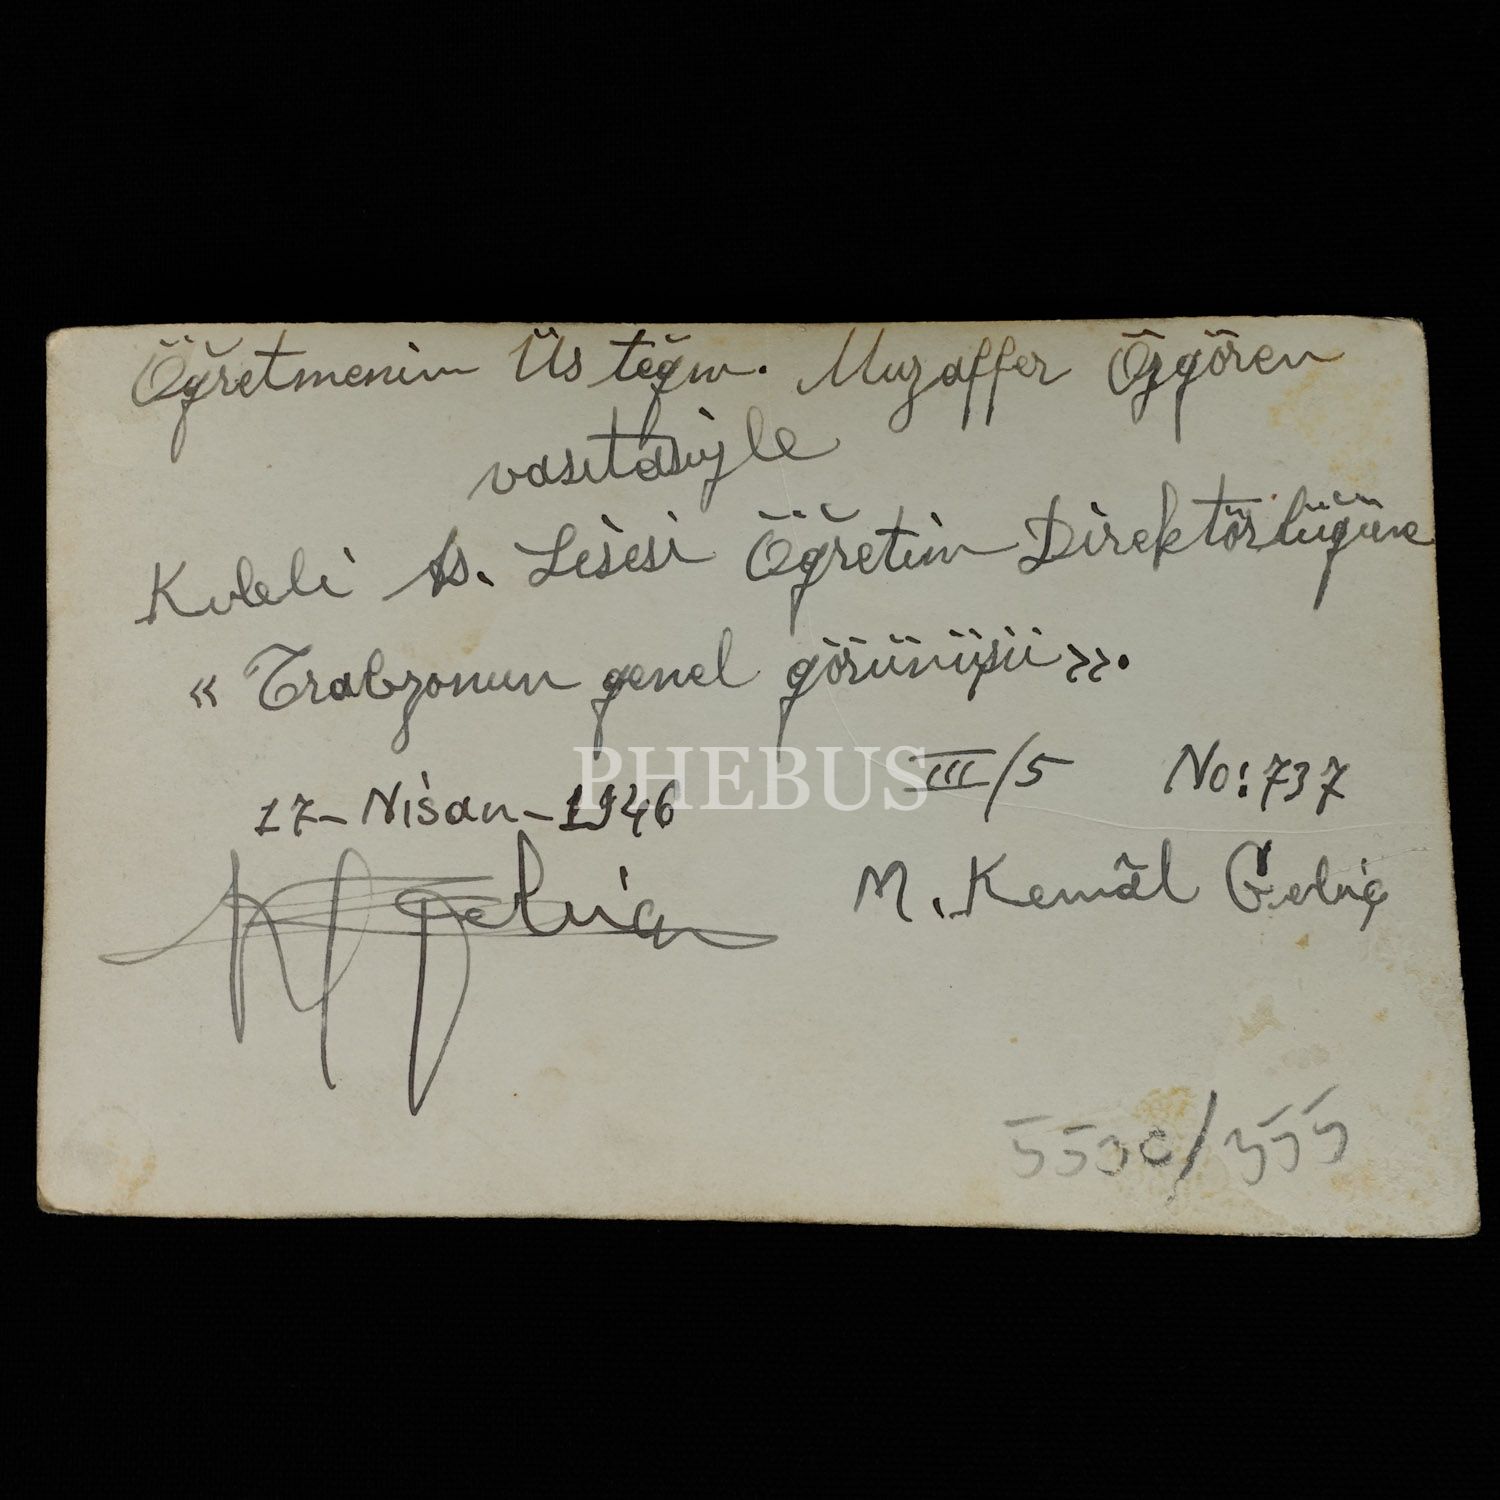 Öğretmenim Üsteğm. Muzaffer Özgören
vasıtasiyle
Kuleli As. Lisesi Öğretim Direktörlüğüne
« Trabzonun genel görünüşü ».
PHEBUS
III/5 No: 737
17- Nisan - 1946
M. Kemâl Gebiç
5530/355